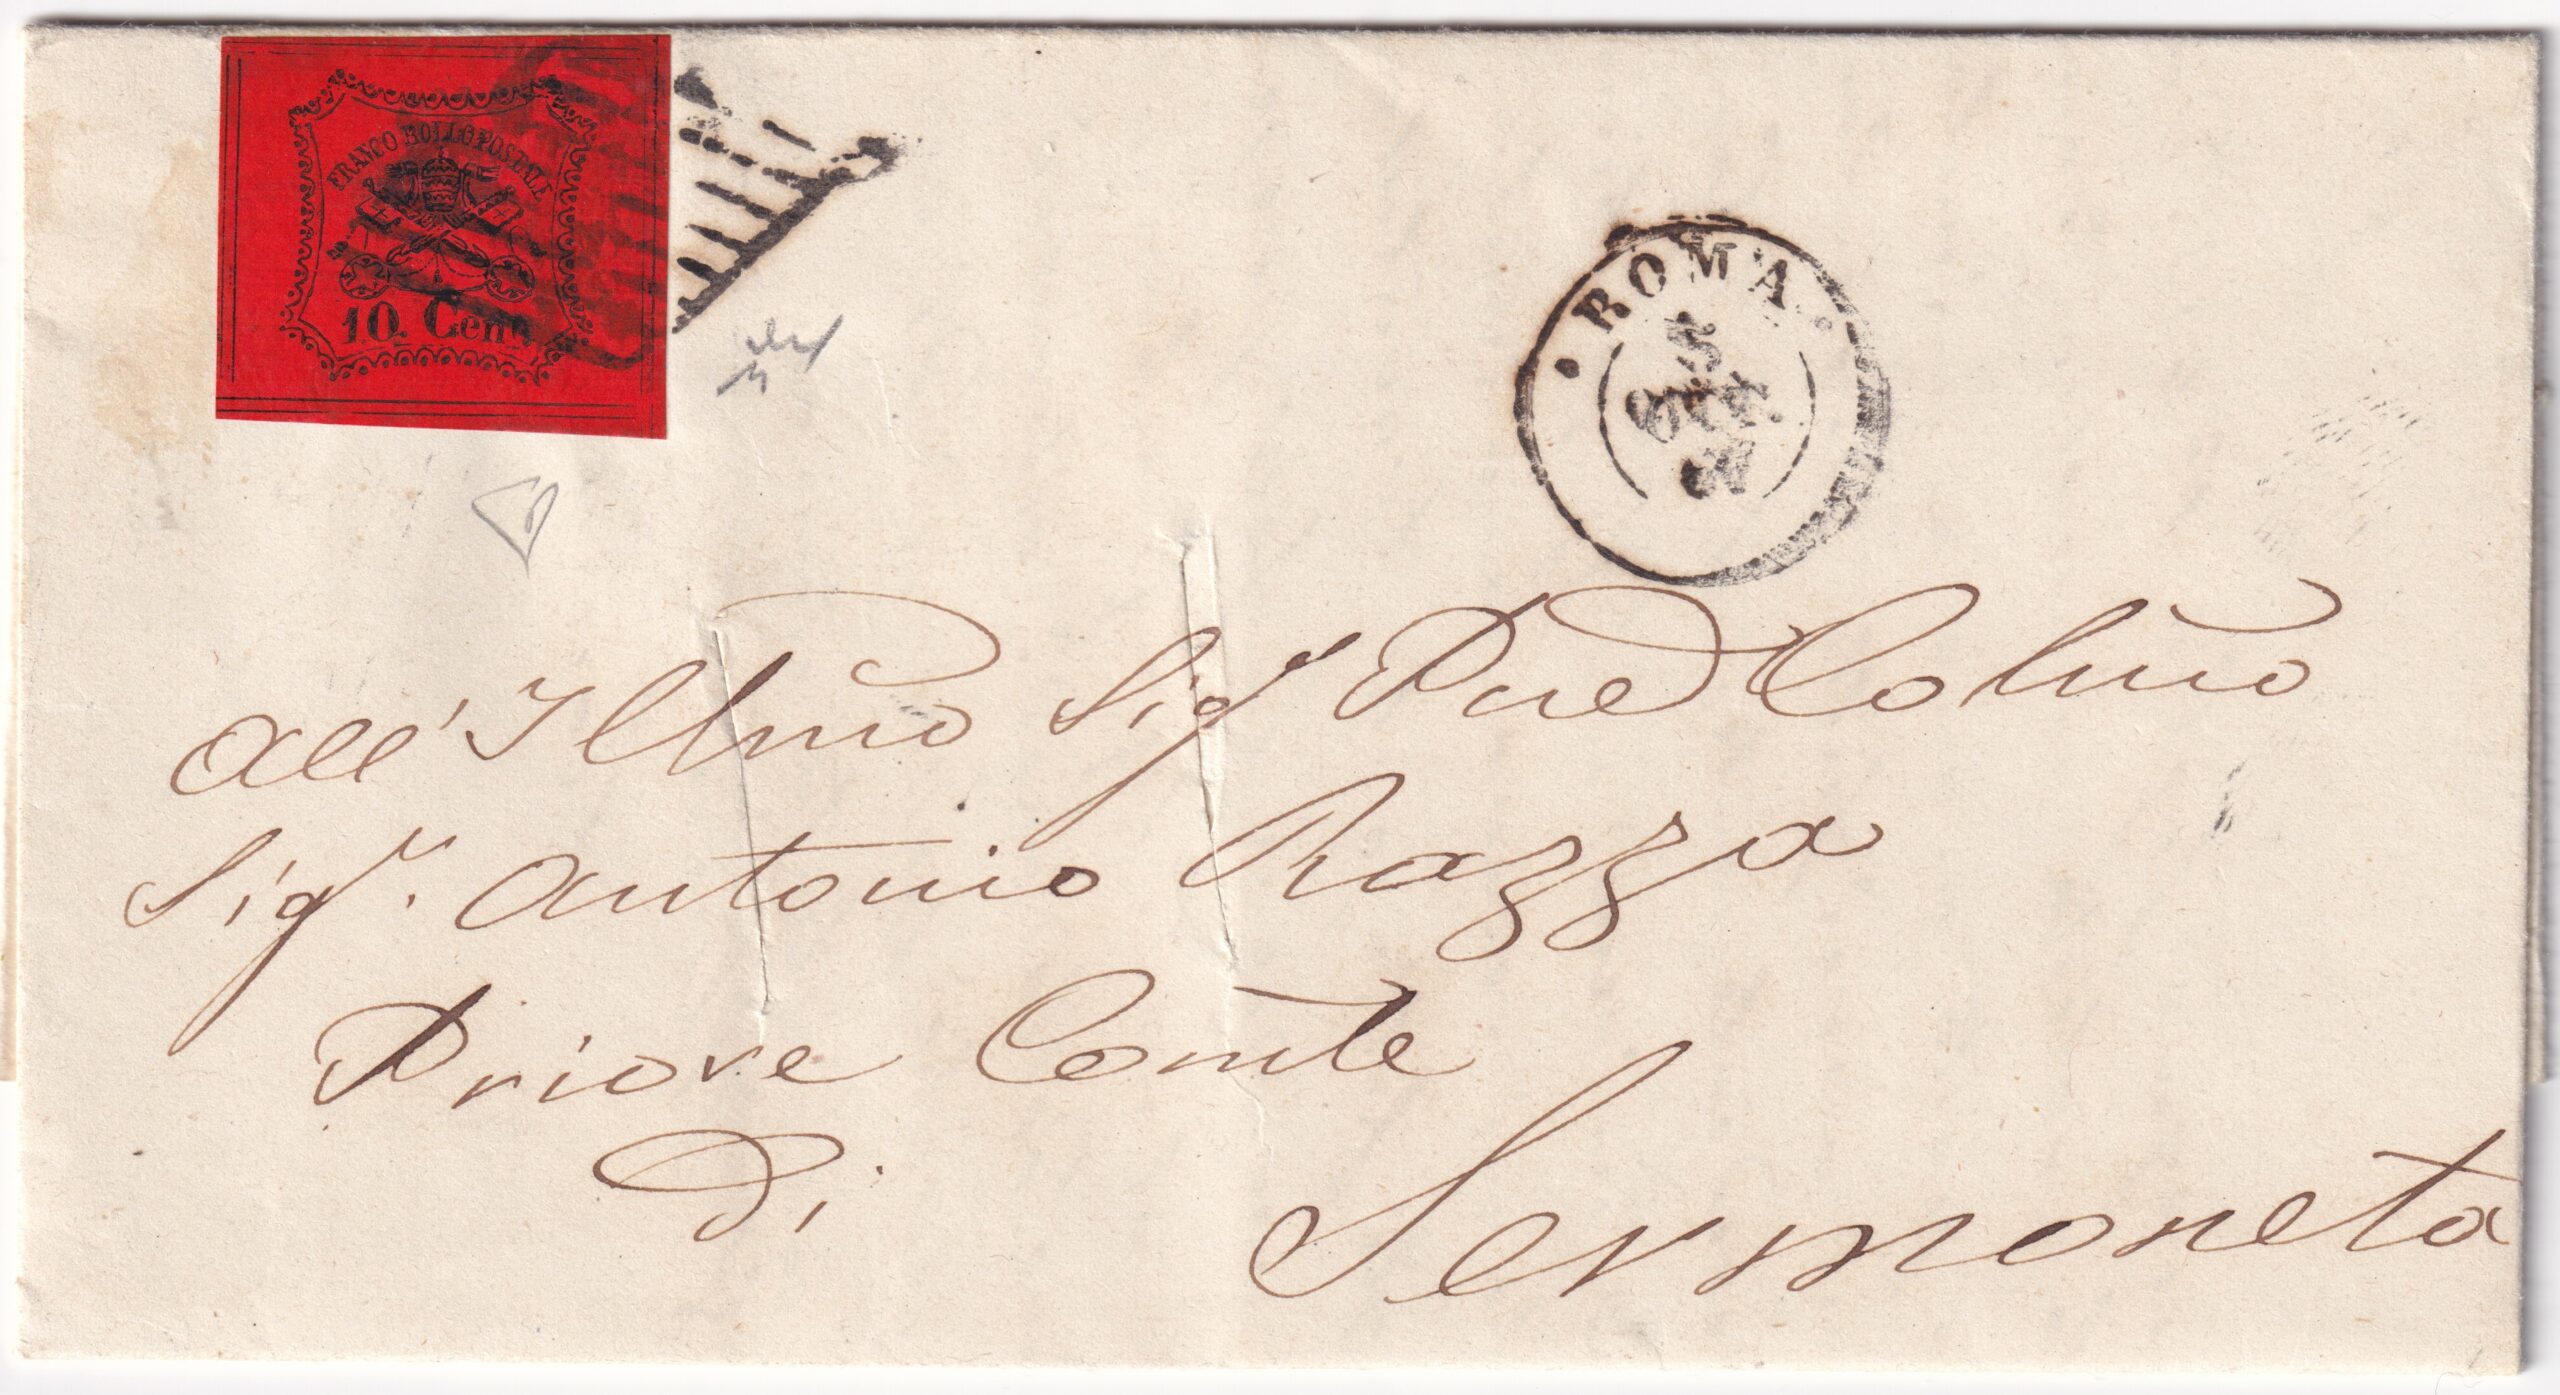 FRANCO BOLLO POSTALE
10. Cent.
ROMA
5
OTT.
67
All' Illmo Sigr Pne Colmo
Sigr. Antonio Razza
Priore Comle
Di
Sermoneta